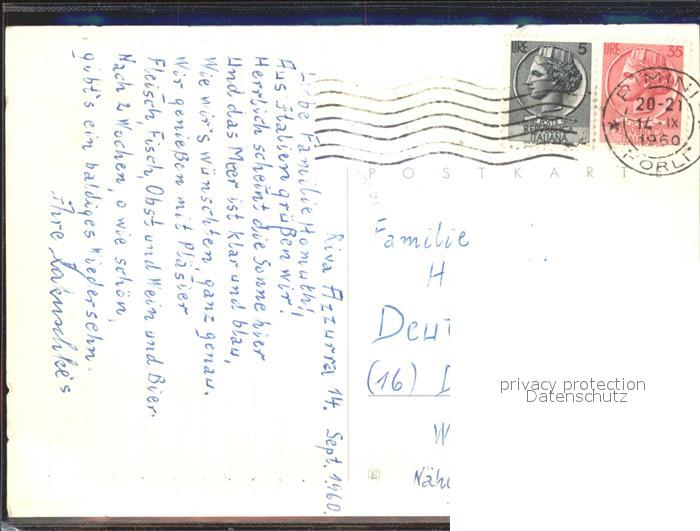 Riva Azzurra 14. Sept. 1960.
Liebe Familie Homuth!,
Aus Italien grüßen wir.
Herrlich scheint die Sonne hier
Und das Meer ist klar und blau,
Wie wir's wünschten, ganz genau.
Wir genießen mit Pläsier
Fleisch, Fisch, Obst und Wein und Bier.
Nach 2 Wochen, o wie schön,
gibt's ein baldiges Wiedersehn.
Ihre
LIRE 5
POSTE
REPUBBLICA
ITALIANA
LIRE 35
RIMINI
20-21
14-IX
1960
FORLI
POSTKARTE
Familie
H
Deut
(16) D
W
Nähe
privacy protection
Datenschutz